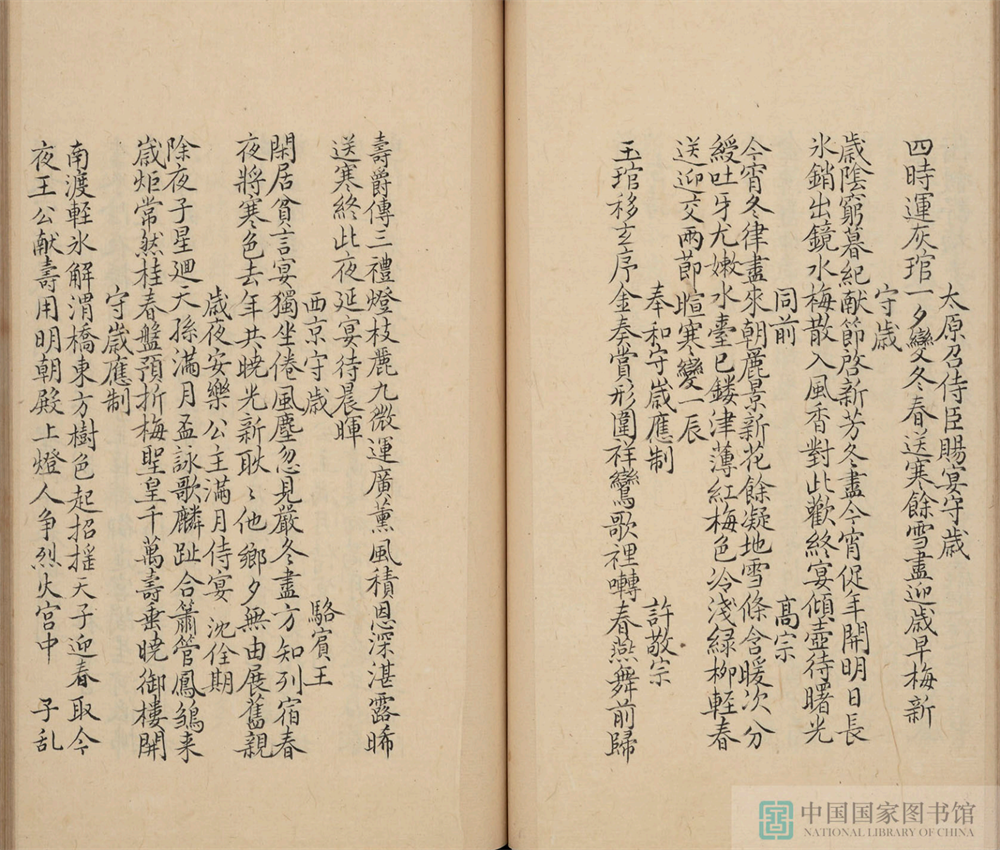 太原召侍臣賜宴守歳
四時運灰琯一夕變冬春送寒餘雪盡迎歳早梅新
守歳
歳陰窮暮紀献節啓新芳冬盡今宵促年開明日長
氷銷出鏡水梅散入風香對此歡終宴傾壺待曙光
同前 髙宗
今宵冬律盡來朝麗景新花餘凝地雪條含暖次分
綬吐牙尤嫩水臺已鏤津薄紅梅色冷淺緑柳輕春
送迎交兩節暄寒變一辰
奉和守歳應制 許敬宗
玉琯移玄序金奏賞彤圍祥鸞歌裡囀春燕舞前歸
壽爵傳三禮燈枝麗九微運廣薰風積恩深湛露晞
送寒終此夜延宴待晨暉
西京守歳 駱賓王
閑居貧言宴獨坐倦風塵忽見嚴冬盡方知列宿春
夜將寒色去年共曉光新耿〻他鄉夕無由展舊親
歳夜安樂公主滿月侍宴 沈佺期
除夜子星廻天孫滿月盃詠歌麟趾合簫管鳳雏来
歳炬常然桂春盤預折梅聖皇千萬壽垂曉御樓開
守歳應制
南渡輕氷解渭橋東方樹色起招揺天子迎春取今
夜王公献壽用明朝殿上燈人争烈火宫中 子乱
中国国家图书馆
NATIONAL LIBRARY OF CHINA